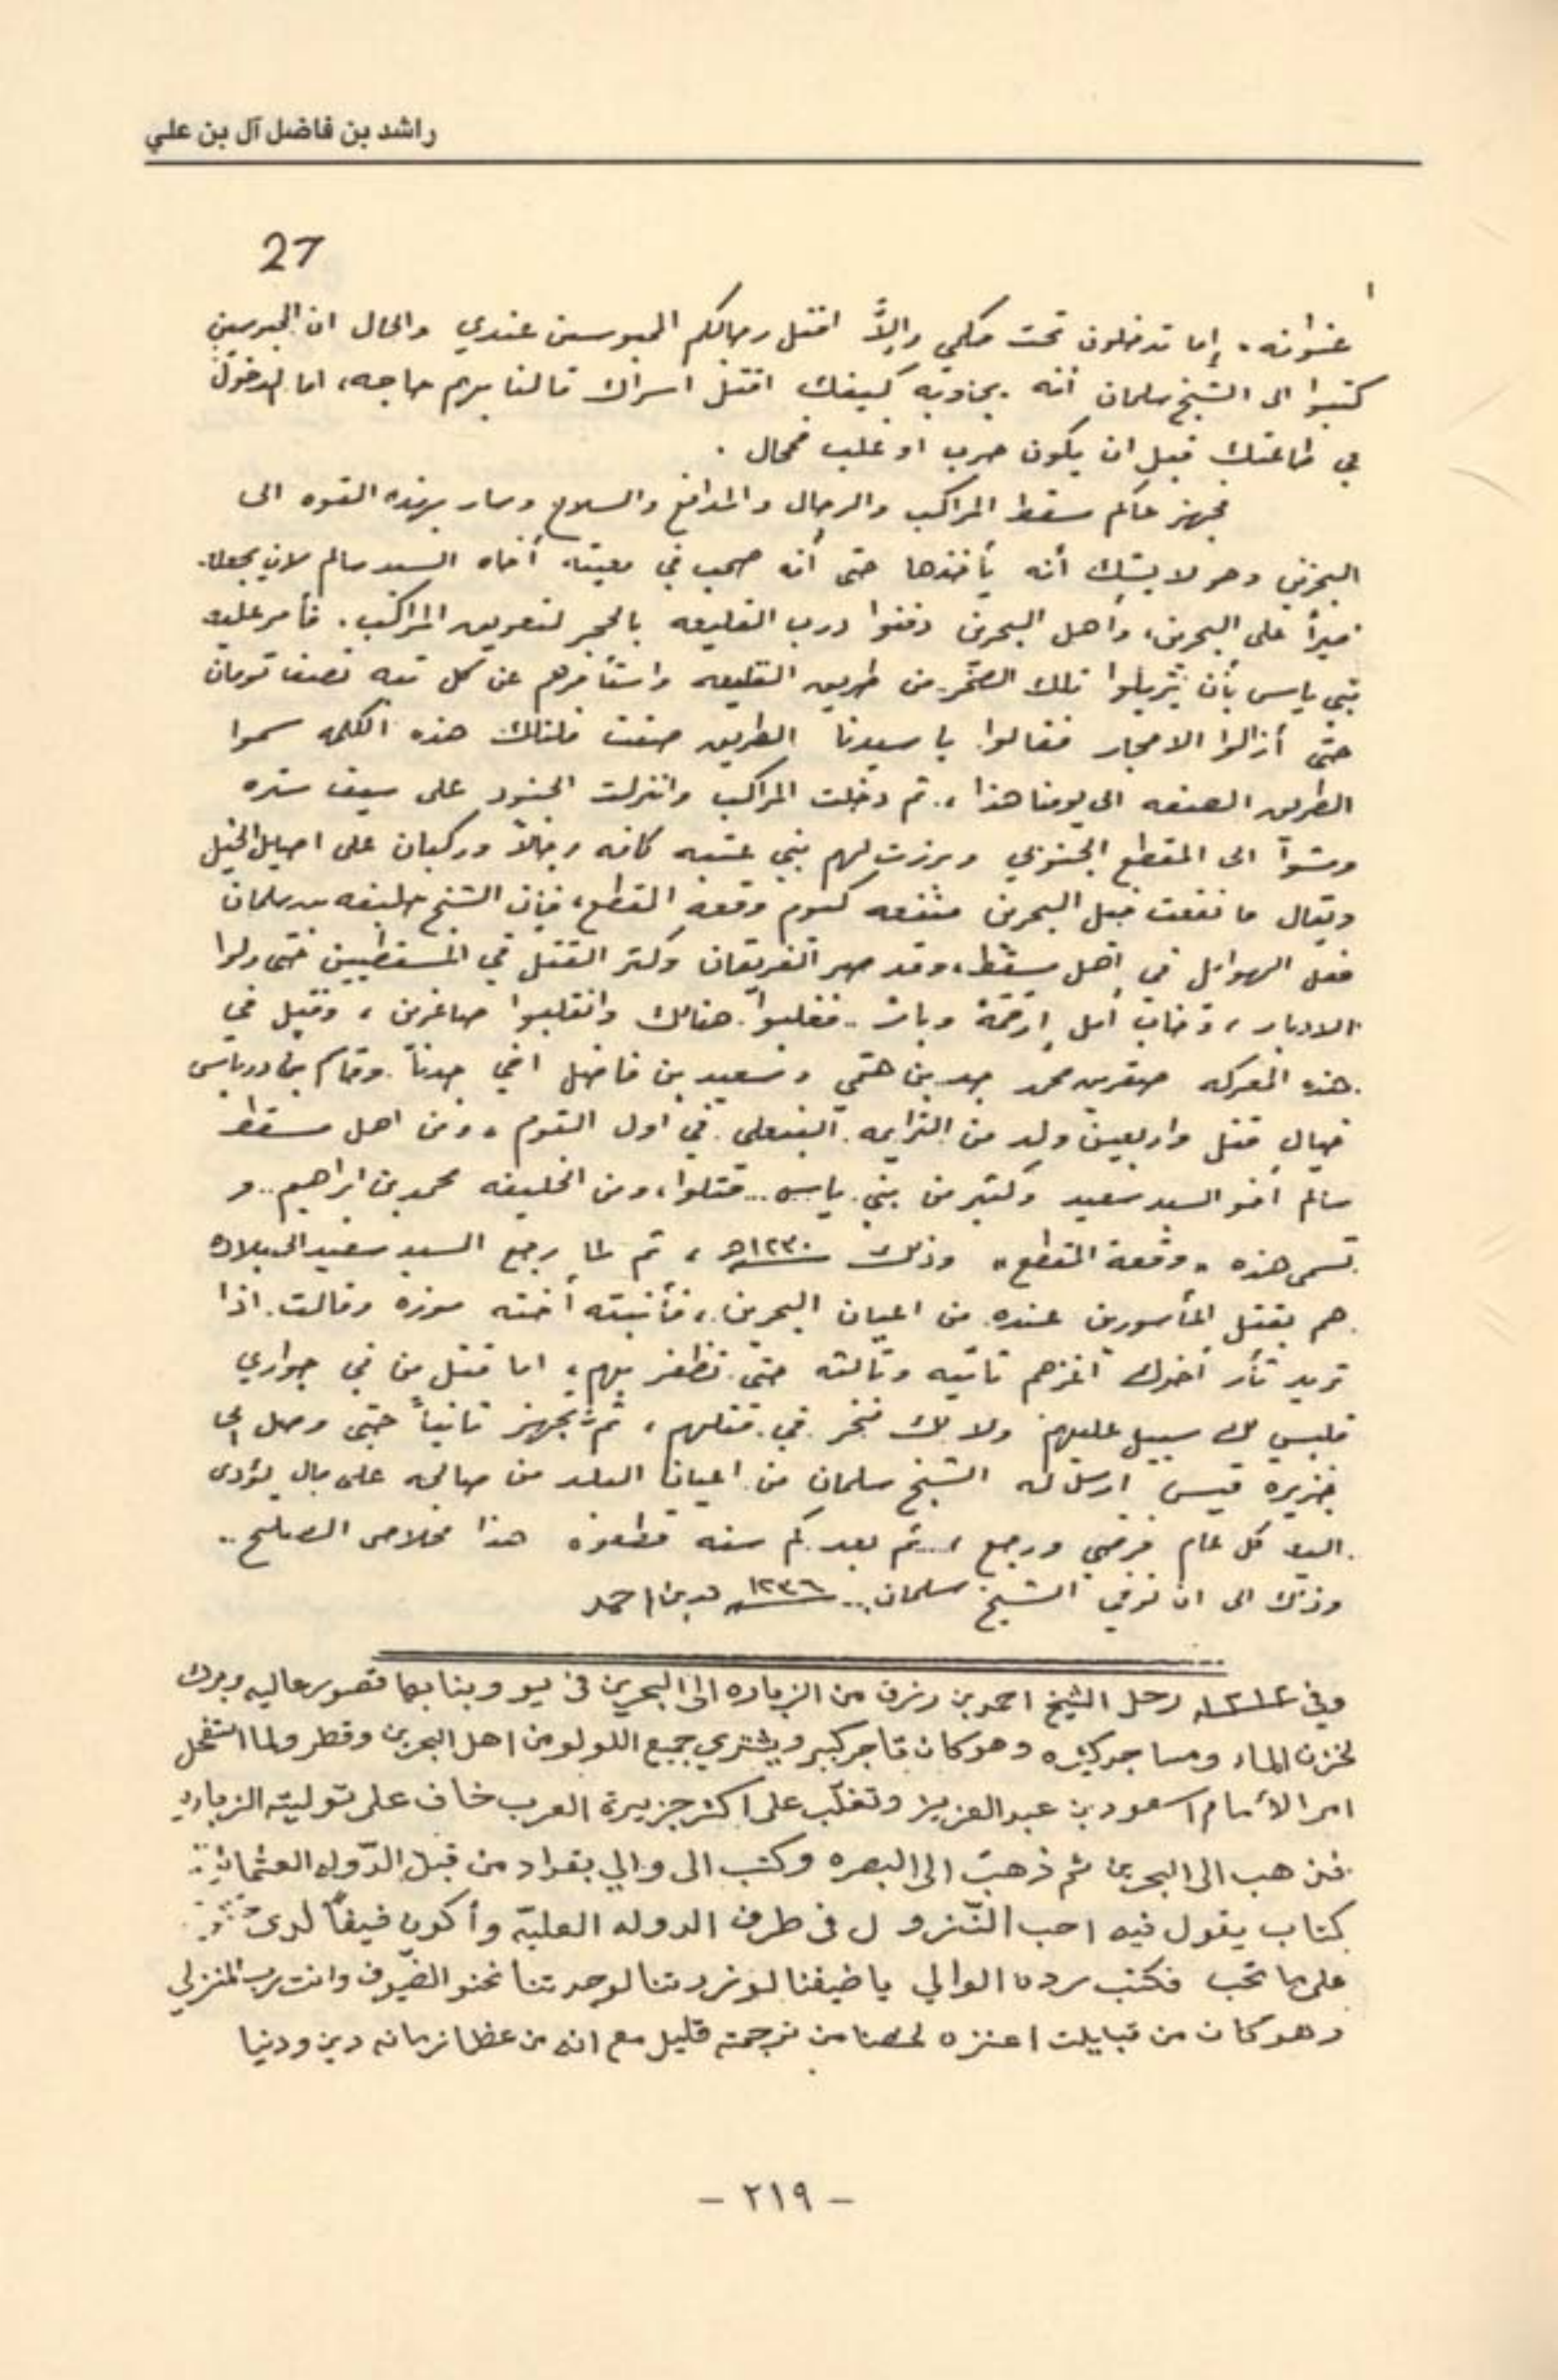 راشد بن فاضل آل بن علي
27
عنوانه . إما تدخلون تحت حكمي وإلاَّ اقتل رجالكم المحبوسين عندي والحال ان المحبوسين
كتبوا الى الشيخ سلمان أنه يجاوبه كيفك اقتل اسراك مالنا بهم حاجه، اما الدخول
في طاعتك قبل ان يكون حرب او غلب فمحال .
فجهز حاكم مسقط المراكب والرجال والمدافع والسلاح وسار بهذه القوه الى
البحرين وهو لا يشك أنه يأخذها حتى أنه صحب في معيته أخاه السيد سالم لان يجعله
اميراً على البحرين، وأهل البحرين دفنوا درب القليعه بالحجر لتعويق المراكب . فأمر
بني ياس بأن يزيلوا تلك الصخر من طريق القليعه واستأجرهم عن كل نصف تومان
حتى أزالوا الاحجار فقالوا يا سيدنا الطريق صفت فلتلك هذه الكلمه سموا
الطريق الصفه الى يومنا هذا ، ثم دخلت المراكب وانزلت الجنود على سيف ستره
ومشوا الى المقطع الجنوبي وبرزت لهم بني عتبه كافه رجالاً وركبان على اصايل الخيل
ويقال ما نفعت خيل البحرين منفعه كيوم وقعة المقطع، فإن الشيخ خليفه بن سلمان
فعل الهوايل في أهل مسقط، وقد صبر الفريقان وكثر القتل في المسقطيين حتى ولوا
الادبار ، وخاب أمل ارحمة وبات .. فغلبوا هنالك وانقلبوا صاغرين ، وقتل في
هذه المعركه صقر بن محمد جد بن هتمي وسعيد بن فاضل اخي جدنا وقام بن درباس
خيال قتل واربعين ولد من البنعلي في اول القوم ، ومن اهل مسقط
سالم أخو السيد سعيد وكثير من بني ياس ... قتلوا، ومن الخليفه محمد بن ابراهيم .. و
تسمى هذه « وقعة المقطع » وذلك سنة ١٢٣٠هـ ، ثم لما رجع السيد سعيد الى بلاده
هم بقتل المأسورين عنده من اعيان البحرين ، فأنبته أخته موزه وقالت اذا
تريد ثأر أخوك اغزهم ثانيه وثالثه حتى تظفر بهم ، اما قتل من في جواري
فليس لك سبيل عليهم ولا بك فخر في قتلهم ، ثم تجهز ثانياً حتى وصل الى
جزيرة قيس ارسل له الشيخ سلمان من اعيان البلد من صالحه على مال يؤدى
اليه كل عام فرضي ورجع ،...ثم بعد كم سنه قطعوه هذا خلاص الصلح ..
وذلك الى ان توفي الشيخ سلمان .. سنة ١٢٣٦ بن احمد
وفي سنة ١٢١٢ رحل الشيخ احمد بن رزق من الزباره الى البحرين في يو وبنا بها قصور عاليه وبرك
لخزن الماء ومساجد كثيره وهو كان تاجر كبير ويشتري جميع اللولو من اهل البحرين وقطر ولما استفحل
امر الأمام اسعود بن عبد العزيز وتغلّب على اكثر جزيرة العرب خاف على توليته الزباره
فذهب الى البحرين ثم ذهب الى البصره وكتب الى والي بغداد من قبل الدّوله العثمانيه
كتاب يقول فيه احب النّزول في طرف الدوله العليّه وأكون ضيفاً لدى
على ما تحب فكتب رده الوالي يا ضيفنا لو زردتنا لوجدتنا نحنو الضيوف وانت رب المنزلي
وهو كان من قبايلت اعنزه لخصنا من ترجمته قليل مع انه من عظما زمانه دين ودنيا
– ٢١٩ –